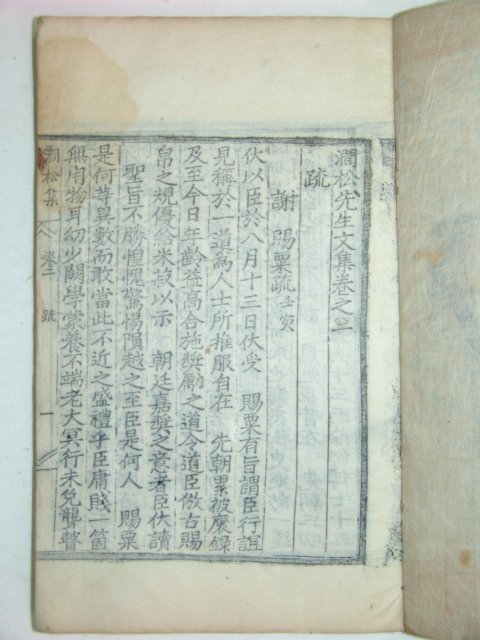 澗松先生文集卷之三
疏
謝 賜粟疏 壬寅
伏以臣於八月十三日伏受 賜粟有旨謂臣行誼
見稱於一道爲人士所推服自在 先朝累被廩錄
及至今日年齡益高合施奬勵之道令道臣倣古賜
帛之規優給米菽以示 朝廷嘉奬之意者臣伏讀
聖旨不勝惶愧驚惕隕越之至臣是何人 賜粟
是何等異數而敢當此不近之盛禮乎臣庸賤一箇
無用物耳幼少闕學蒙養不端老大冥行未免聾瞽
澗松集 卷三 疏 一